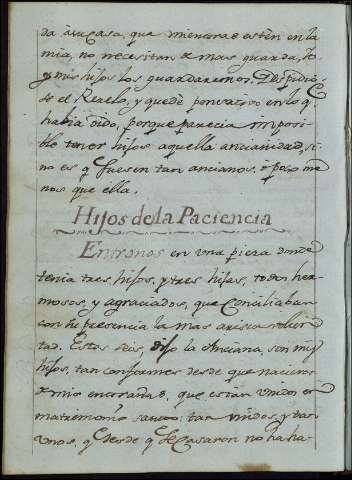 da à su casa, que mientras estèn en la
mia, no necesitan de mas guarda, Yo
y mis hijos los guardaremos. Despidio-
se el Rezelo, y quedè pensativo en lo q.
habia oido, porque parecia imposi-
ble tener hijos aquella ancianidad, si
no es q fuesen tan ancianos, ò poco me
nos que ella.
Hijos de la Paciencia
Entramos en una pieza donde
tenia tres hijos, y tres hijas, todos her-
mosos, y agraciados, que Conciliaban
con su presencia la mas arisca volun
tad. Estos seis, dijo la Anciana, son mis
hijos, tan conformes desde que nacieron
de mis entrañas, que estan unidos en
matrimonio santo: tan unidos, y tan
unos, q desde q se Casaron no ha ha-